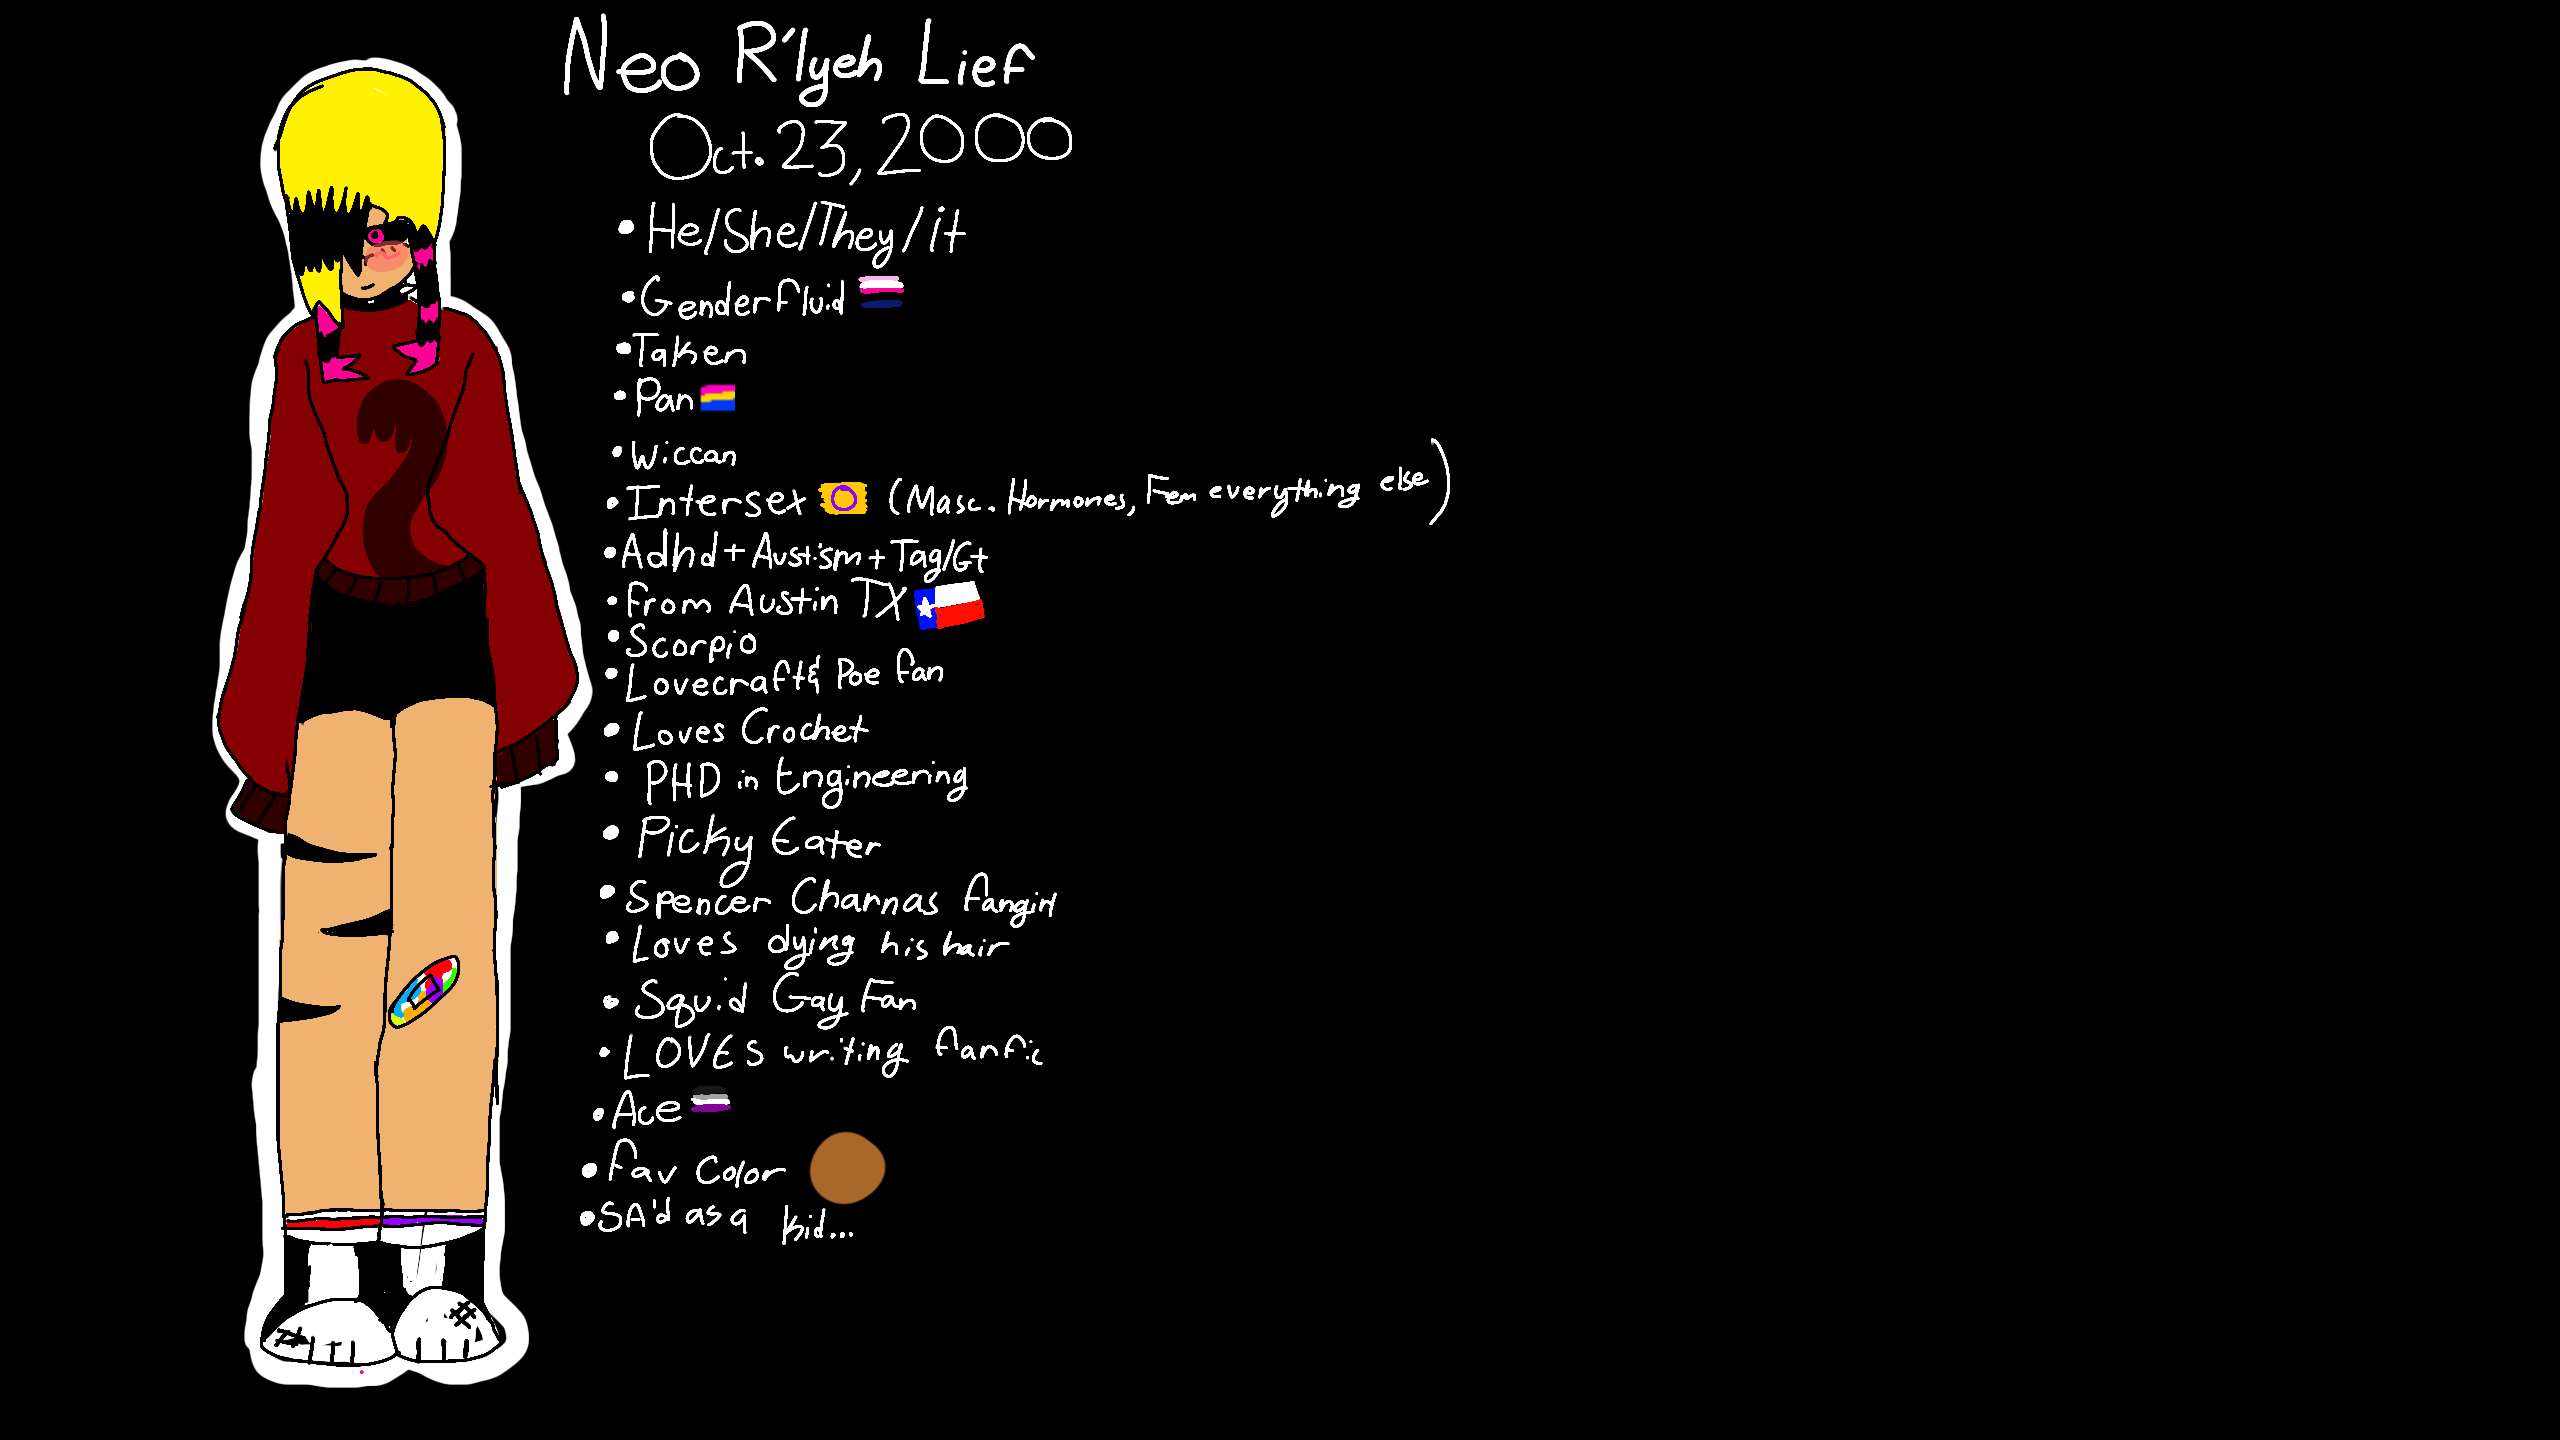 Neo R'lyeh Lief
Oct. 23, 2000
• He/She/They/it
• Genderfluid
• Taken
• Pan
• Wiccan
• Intersex (Masc. Hormones, Fem everything else)
• Adhd + Austism + Tag/Gt
• From Austin TX
• Scorpio
• Lovecraft & Poe fan
• Loves Crochet
• PHD in Engineering
• Picky Eater
• Spencer Charnas fangirl
• Loves dying his hair
• Squid Gay Fan
• LOVES writing flanfic
• Ace
• Fav Color
• SA'd as a kid...